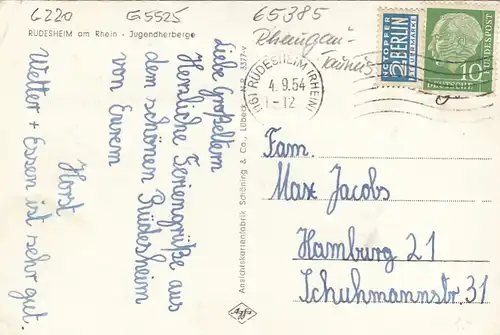 6220 G5525 65385
RÜDESHEIM am Rhein - Jugendherberge
Rheingau-
Taunus
liebe Großeltern
Herzliche Feriengrüße aus
dem schönen Rüdesheim
von Eurem
Horst
Wetter + Essen ist sehr gut.
Ansichtskartenfabrik Schöning & Co., Lübeck
(16) RÜDESHEIM (RHEIN)
4.9.54
-12
NOTOPFER
2 BERLIN
STEUERMARKE
DEUTSCHE
BUNDESPOST
10
Fam.
Max Jacobs
Hamburg 21
Schuhmannstr. 31
Agfa